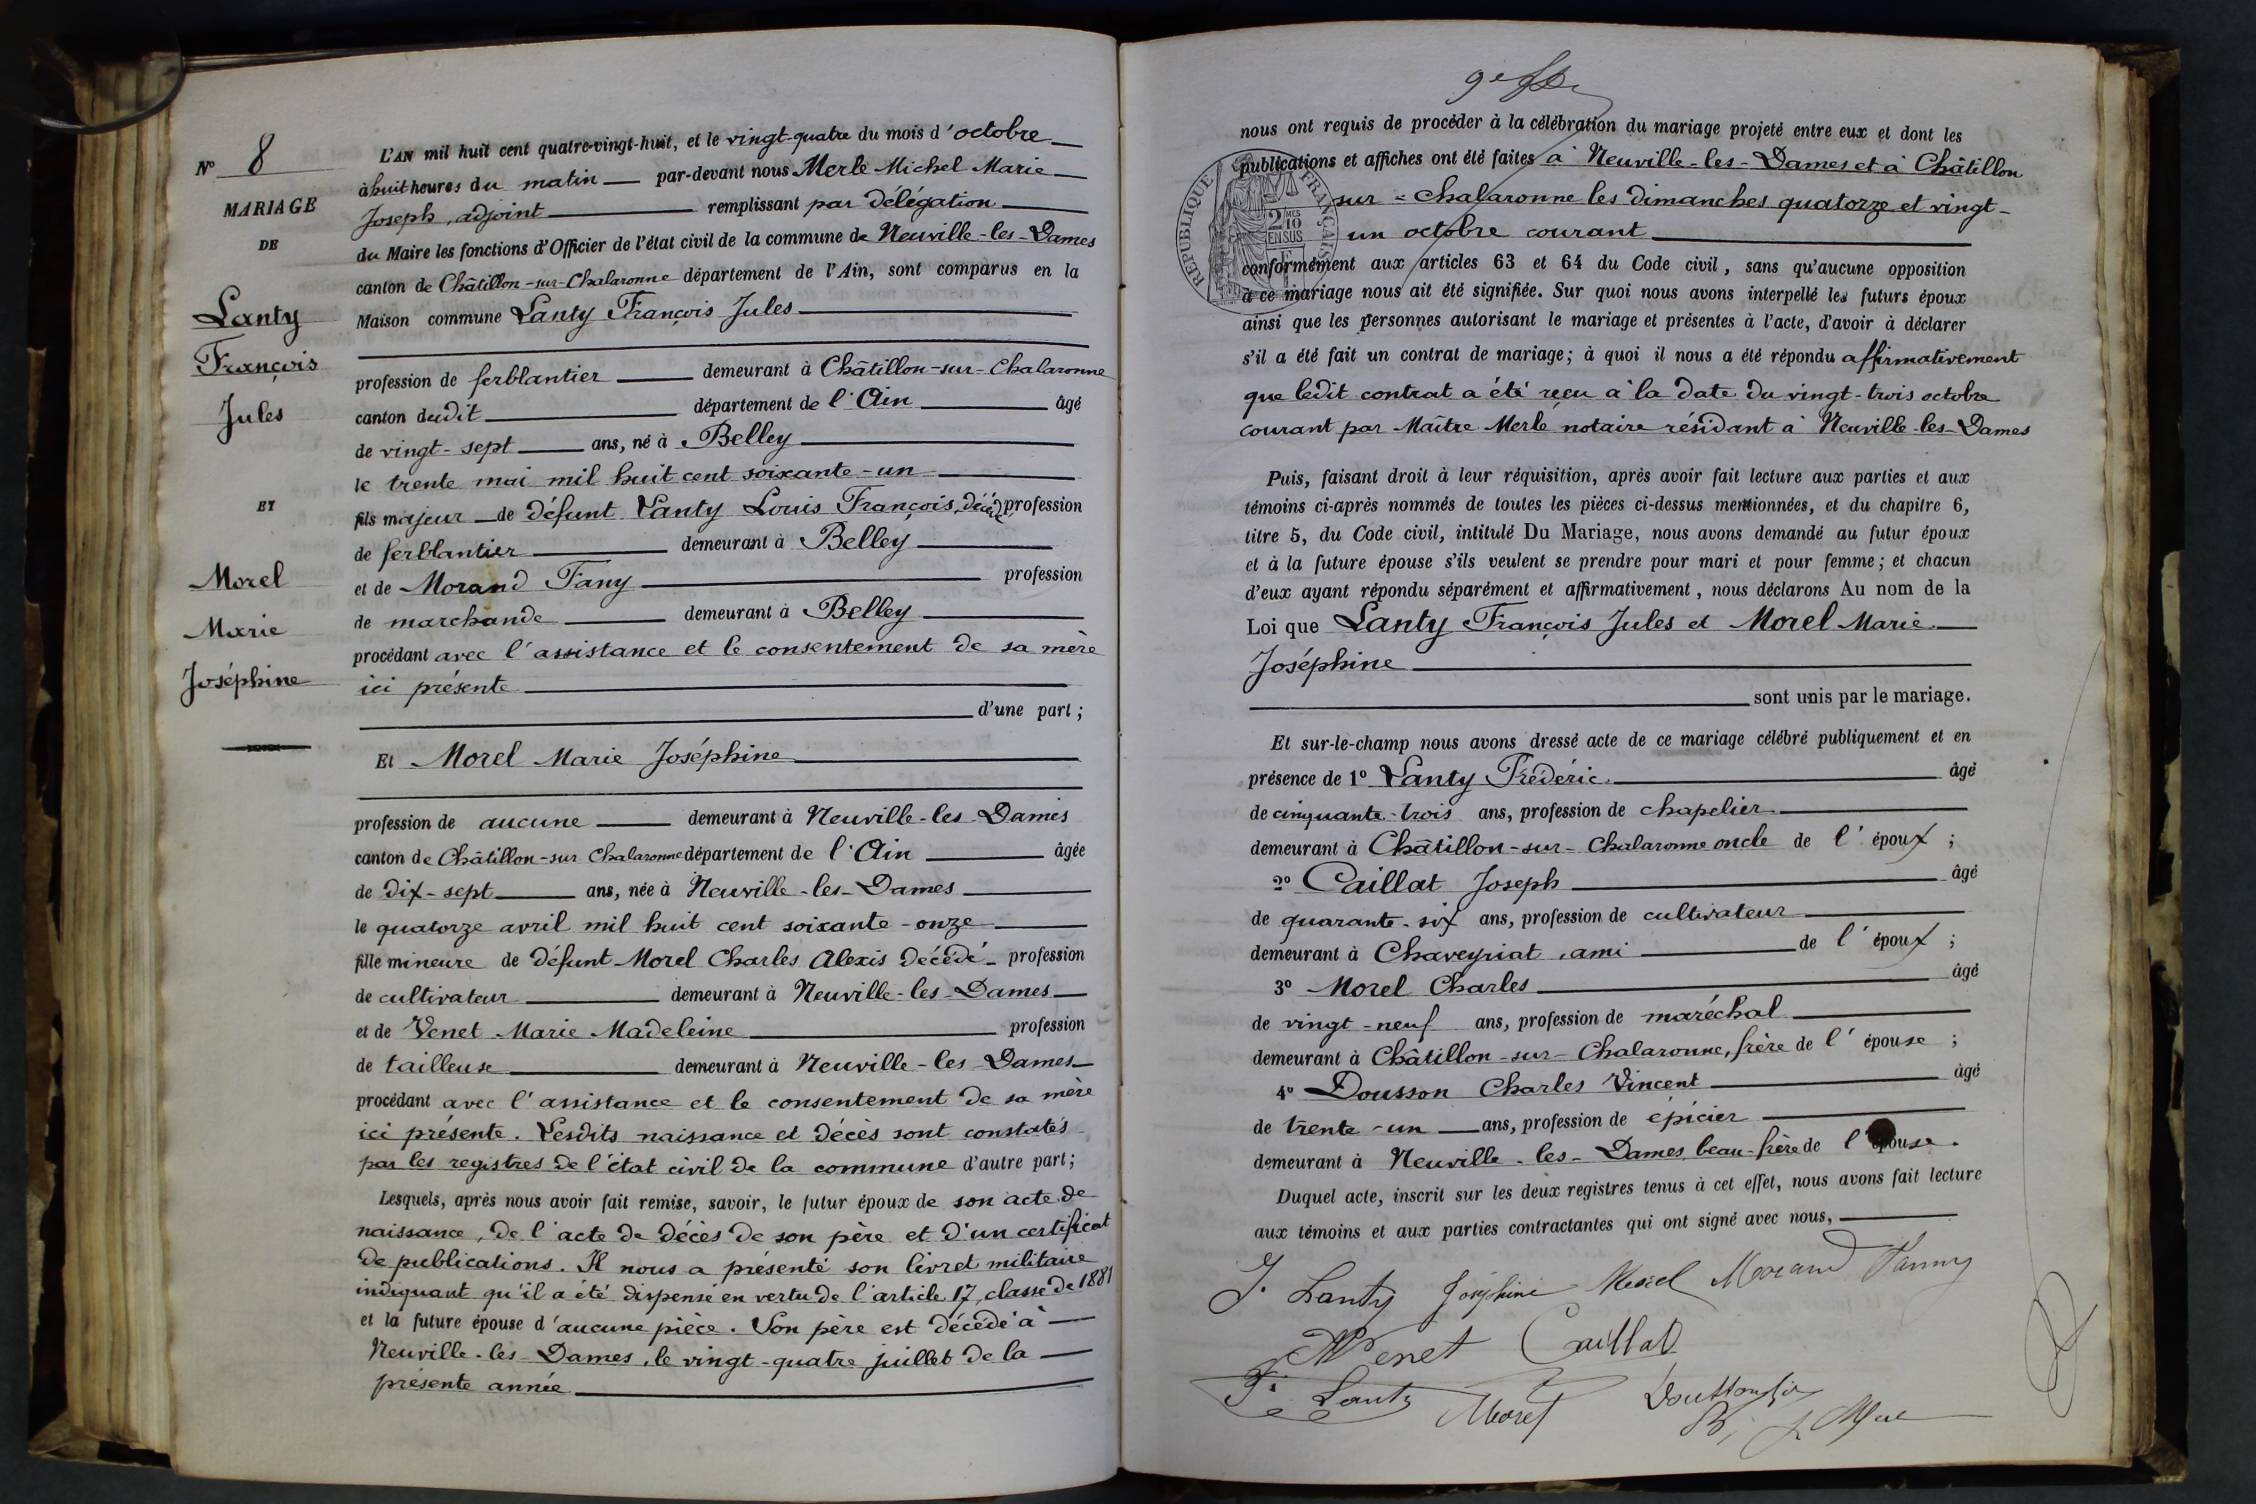 N° 8
MARIAGE
DE
Lanty
François
Jules
ET
Morel
Marie
Joséphine
L'AN mil huit cent quatre-vingt-huit, et le vingt-quatre du mois d'octobre
à huit heures du matin par-devant nous Merle Michel Marie
Joseph, adjoint remplissant par délégation
du Maire les fonctions d'Officier de l'état civil de la commune de Neuville-les-Dames
canton de Châtillon-sur-Chalaronne département de l'Ain, sont comparus en la
Maison commune Lanty François Jules
profession de ferblantier demeurant à Châtillon-sur-Chalaronne
canton dudit département de l'Ain âgé
de vingt-sept ans, né à Belley
le trente mai mil huit cent soixante-un
fils majeur de défunt Lanty Louis François, décédé, profession
de ferblantier demeurant à Belley
et de Morand Fany profession
de marchande demeurant à Belley
procédant avec l'assistance et le consentement de sa mère
ici présente
d'une part;
Et Morel Marie Joséphine
profession de aucune demeurant à Neuville-les-Dames
canton de Châtillon-sur Chalaronne département de l'Ain âgée
de dix-sept ans, née à Neuville-les-Dames
le quatorze avril mil huit cent soixante-onze
fille mineure de défunt Morel Charles Alexis décédé profession
de cultivateur demeurant à Neuville-les-Dames
et de Venet Marie Madeleine profession
de tailleuse demeurant à Neuville-les-Dames
procédant avec l'assistance et le consentement de sa mère
ici présente. Lesdits naissance et décès sont constatés
par les registres de l'état civil de la commune d'autre part;
Lesquels, après nous avoir fait remise, savoir, le futur époux de son acte de
naissance, de l'acte de décès de son père et d'un certificat
de publications. Il nous a présenté son livret militaire
indiquant qu'il a été dispensé en vertu de l'article 17, classe de 1881
et la future épouse d'aucune pièce. Son père est décédé à
Neuville-les-Dames, le vingt-quatre juillet de la
présente année
nous ont requis de procéder à la célébration du mariage projeté entre eux et dont les
publications et affiches ont été faites à Neuville-les-Dames et à Châtillon
sur-Chalaronne les dimanches quatorze et vingt-
un octobre courant
RÉPUBLIQUE FRANÇAISE
2 MES
10
EN SUS
conformément aux articles 63 et 64 du Code civil, sans qu'aucune opposition
à ce mariage nous ait été signifiée. Sur quoi nous avons interpellé les futurs époux
ainsi que les personnes autorisant le mariage et présentes à l'acte, d'avoir à déclarer
s'il a été fait un contrat de mariage; à quoi il nous a été répondu affirmativement
que ledit contrat a été reçu à la date du vingt-trois octobre
courant par Maître Merle notaire résidant à Neuville-les-Dames
Puis, faisant droit à leur réquisition, après avoir fait lecture aux parties et aux
témoins ci-après nommés de toutes les pièces ci-dessus mentionnées, et du chapitre 6,
titre 5, du Code civil, intitulé Du Mariage, nous avons demandé au futur époux
et à la future épouse s'ils veulent se prendre pour mari et pour femme; et chacun
d'eux ayant répondu séparément et affirmativement, nous déclarons Au nom de la
Loi que Lanty François Jules et Morel Marie
Joséphine
sont unis par le mariage.
Et sur-le-champ nous avons dressé acte de ce mariage célébré publiquement et en
présence de 1° Lanty Frédéric âgé
de cinquante-trois ans, profession de chapelier
demeurant à Châtillon-sur-Chalaronne oncle de l'époux;
2° Caillat Joseph âgé
de quarante-six ans, profession de cultivateur
demeurant à Chaveyriat, ami de l'époux;
3° Morel Charles âgé
de vingt-neuf ans, profession de maréchal
demeurant à Châtillon-sur-Chalaronne, frère de l'épouse;
4° Dousson Charles Vincent âgé
de trente-un ans, profession de épicier
demeurant à Neuville-les-Dames beau-frère de l'épouse.
Duquel acte, inscrit sur les deux registres tenus à cet effet, nous avons fait lecture
aux témoins et aux parties contractantes qui ont signé avec nous,
J. Lanty Joséphine Morel Morand Fanny
M Venet Caillat
Lanty Morel Dousson